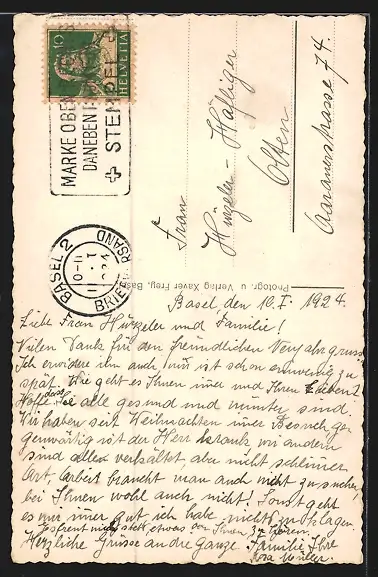 10
HELVETIA
MARKE OBEN
DANEBEN
STEMPEL
BASEL 2
BRIEFVERSAND
Frau
Hürzeler-Häfliger
Olten
Aarauerstrasse 74.
Photogr. u. Verlag Xaver Frey, Basel
Basel, den 10. I. 1924.
Liebe Frau Hürzeler und Familie!
Vielen Dank für den freundlichen Neujahrsgruss
Ich erwidere ihn auch, nur ist schon ein wenig zu
spät. Wie geht es Ihnen immer und Ihren Lieben?
Hoffe dass Sie alle gesund und munter sind.
Wir haben seit Weihnachten immer Besuch ge-
genwärtig ist der Herr krank, wir andern
sind alle verkältet, aber nicht schlimmer
Art, Arbeit braucht man auch nicht zu suchen,
bei Ihnen wohl auch nicht! Sonst geht
es mir immer gut ich habe nicht zu klagen.
Es freut mich stets etwas von Ihnen zu hören.
Herzliche Grüsse an die ganze Familie Ihre
Rosa Müller